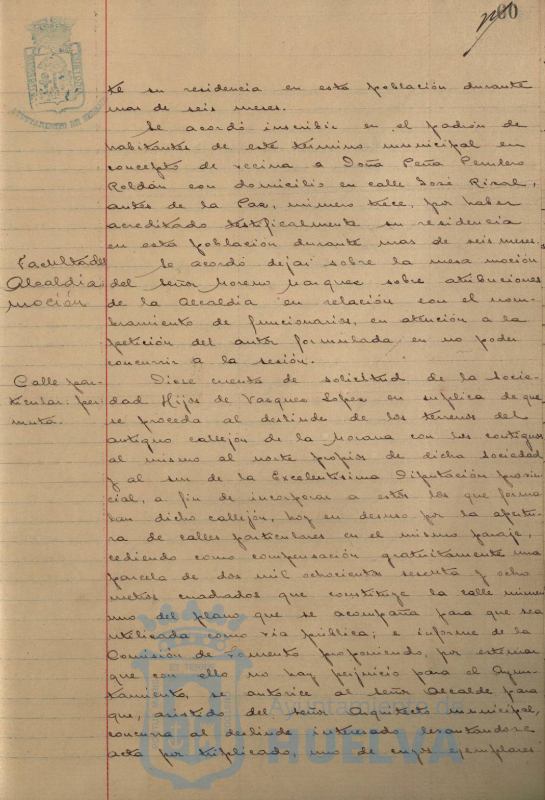 60
te su residencia en esta población durante
mas de seis meses.
Se acordó inscribir en el padrón de
habitantes de este término municipal en
concepto de vecina a Doña Peña
Roldán con domicilio en calle José Rizal,
antes de la Paz, número trece, por haber
acreditado testificalmente su residencia
en esta población durante mas de seis meses.
Facultades
Alcaldía
moción
Se acordó dejar sobre la mesa moción
del Señor Moreno Marquez sobre atribuciones
de la Alcaldía en relación con el nom-
bramiento de funcionarios, en atención a la
petición del autor formulada en no poder
concurrir a la sesión.
Calle par-
ticular: per-
muta.
Diose cuenta de solicitud de la Socie-
dad Hijos de Vasquez Lopez en suplica de que
se proceda al deslinde de los terrenos del
antiguo callejón de la Morana con los contiguos
al mismo al norte propios de dicha sociedad
y al sur de la Excelentísima Diputación provin-
cial, a fin de incorporar a estos los que forma-
ban dicho callejón, hoy en desuso por la apertu-
ra de calles particulares en el mismo paraje,
cediendo como compensación gratuitamente una
parcela de dos mil ochocientos sesenta y ocho
metros cuadrados que constituye la calle número
uno del plano que se acompaña para que sea
utilizada como vía pública; e informe de la
Comisión de Fomento proponiendo, por estimar
que con ello no hay perjuicio para el Ayun-
tamiento, se autorice al señor Alcalde para
que, asistido del Señor Arquitecto municipal,
concurra al deslinde interesado levantandose
acta por triplicado, uno de cuyos ejemplares
Ayuntamiento de
HUELVA